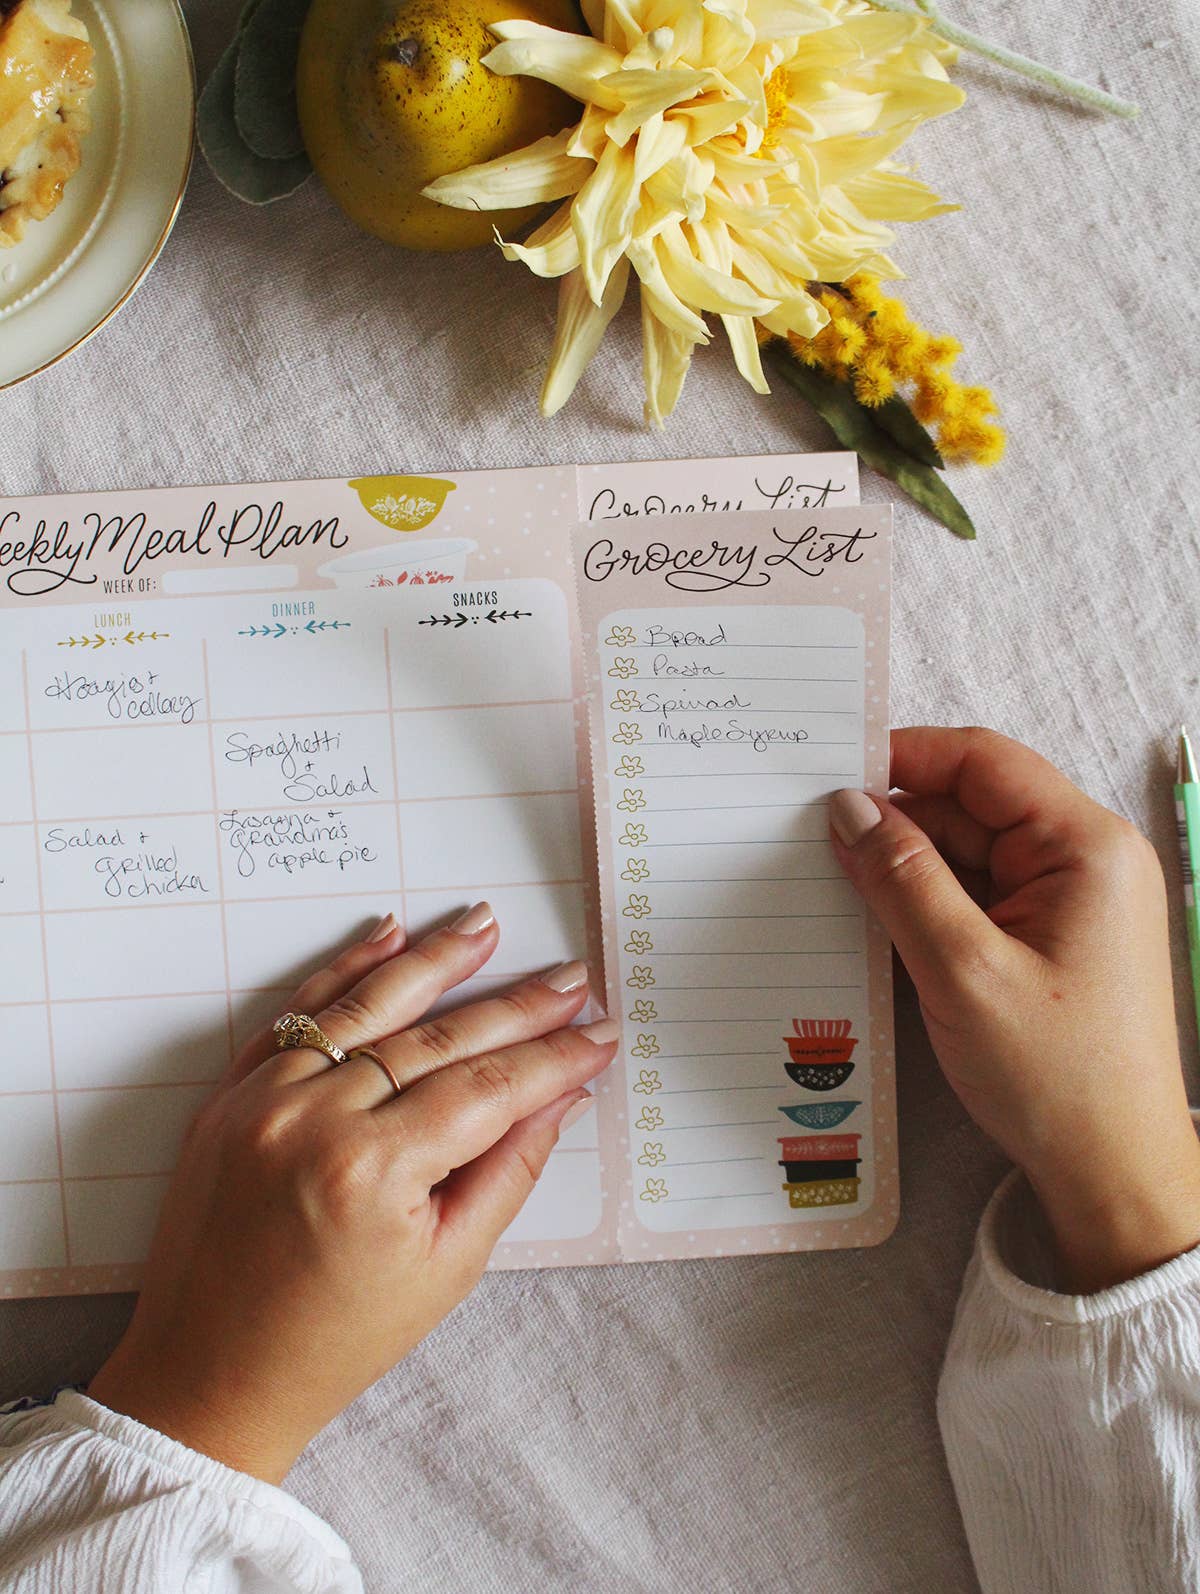 Weekly Meal Plan
WEEK OF:
LUNCH
DINNER
SNACKS
Hoagies +
cellery
Spaghetti
+
Salad
Salad +
grilled
chicken
Lasagna +
grandma's
apple pie
Grocery List
Grocery List
Bread
Pasta
Spinach
Maple Syrup